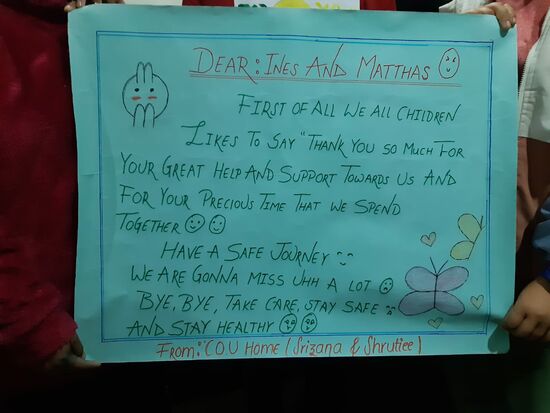 DEAR: INES AND MATTHAS
FIRST OF ALL WE ALL CHILDREN
LIKES TO SAY "THANK YOU SO MUCH FOR
YOUR GREAT HELP AND SUPPORT TOWARDS US AND
FOR YOUR PRECIOUS TIME THAT WE SPEND
TOGETHER
HAVE A SAFE JOURNEY
WE ARE GONNA MISS UHH A LOT
BYE, BYE, TAKE CARE, STAY SAFE
AND STAY HEALTHY
From: C.O.U Home (Srizana & Shrutiee)